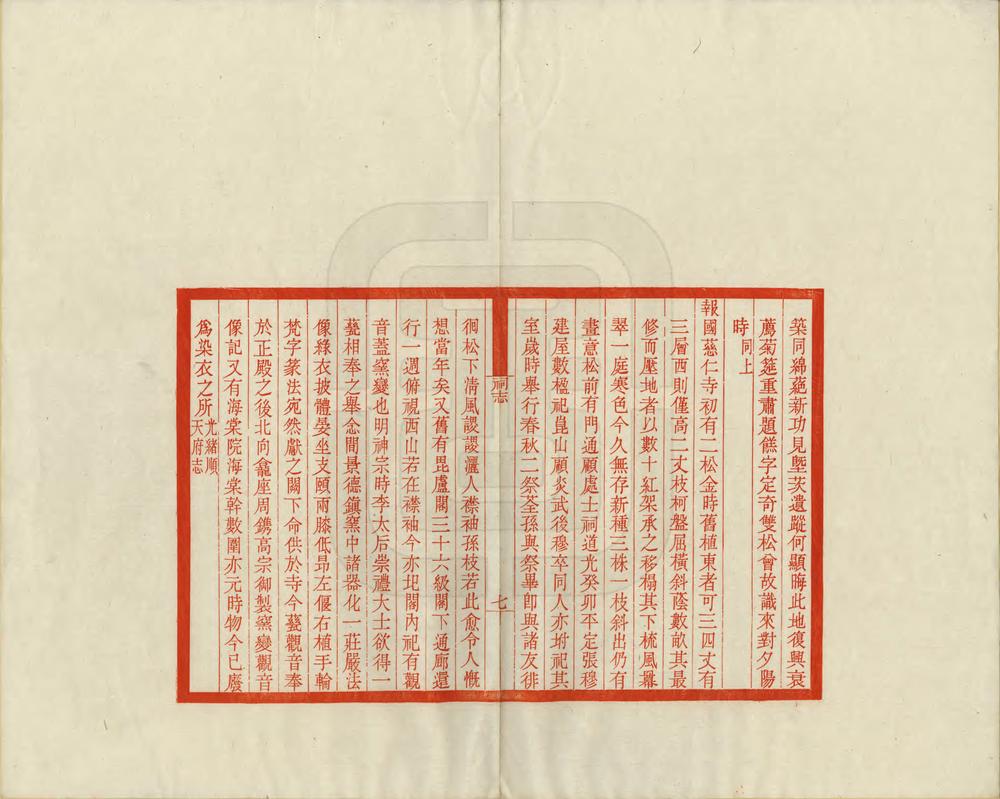 築同綿蕝新功見塈茨遺蹤何顯晦此地復興衰
薦菊筵重肅題餻字定奇雙松曾故識來對夕陽
時同上
報國慈仁寺初有二松金時舊植東者可三四丈有
三層西則僅高二丈枝柯盤屈橫斜蔭數畝其最
修而壓地者以數十紅架承之移榻其下梳風冪
翠一庭寒色今久無存新種三株一枝斜出仍有
畫意松前有門通顧處士祠道光癸卯平定張穆
建屋數楹祀崑山顧炎武後穆卒同人亦坿祀其
室歲時舉行春秋二祭荃孫與祭畢卽與諸友徘
祠志
七
徊松下淸風謖謖灑人襟袖孫枝若此愈令人慨
想當年矣又舊有毘盧閣三十六級閣下通廊還
行一週俯視西山若在襟袖今亦圮閣內祀有觀
音蓋窰變也明神宗時李太后崇禮大士欲得一
甆相奉之舉念間景德鎭窰中諸器化一莊嚴法
像綠衣披體晏坐支頤兩膝低昻左偃右植手輪
梵字篆法宛然獻之闕下命供於寺今甆觀音奉
於正殿之後北向龕座周鐫高宗御製窰變觀音
像記又有海棠院海棠幹數圍亦元時物今已廢
爲染衣之所光緒順
天府志